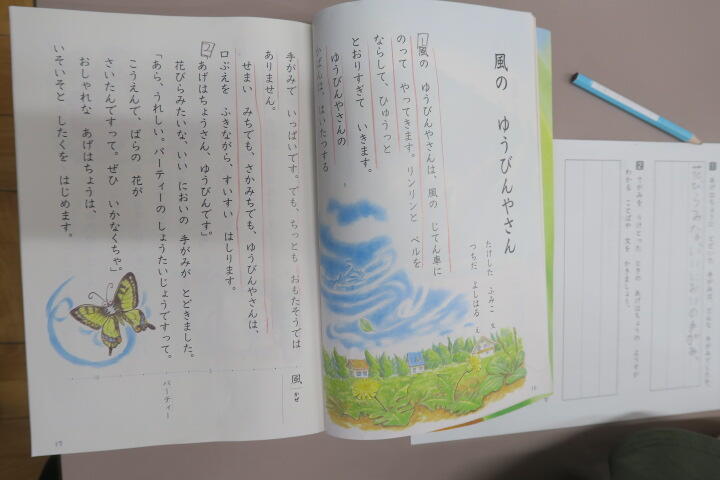 風の ゆうびんやさん
たけした ふみこ 文
つちだ よしはる 絵
1 風の ゆうびんやさんは、風の じてん車に
のって やってきます。リンリンと ベルを
ならして、ひゅうっと
とおりすぎて いきます。
ゆうびんやさんの
かばんは、はいたつする
16
手がみで いっぱいです。でも、ちっとも おもたそうでは
ありません。
せまい みちでも、さかみちでも、ゆうびんやさんは、
口ぶえを ふきながら、すいすい はしります。
2 「あげはちょうさん、ゆうびんです」
花びらみたいな、いい においの 手がみが とどきました。
「あら、うれしい。パーティーの しょうたいじょうですって。
こうえんで、ばらの 花が
さいたんですって。ぜひ いかなくちゃ。」
おしゃれな あげはちょうは、
いそいそと したくを はじめます。
風 かぜ
パーティー
17
1
花びらみたいな、いい においの 手がみ。
2 てがみを うけとった ときの あげはちょうの ようすが
わかる ことばや 文を かきましょう。